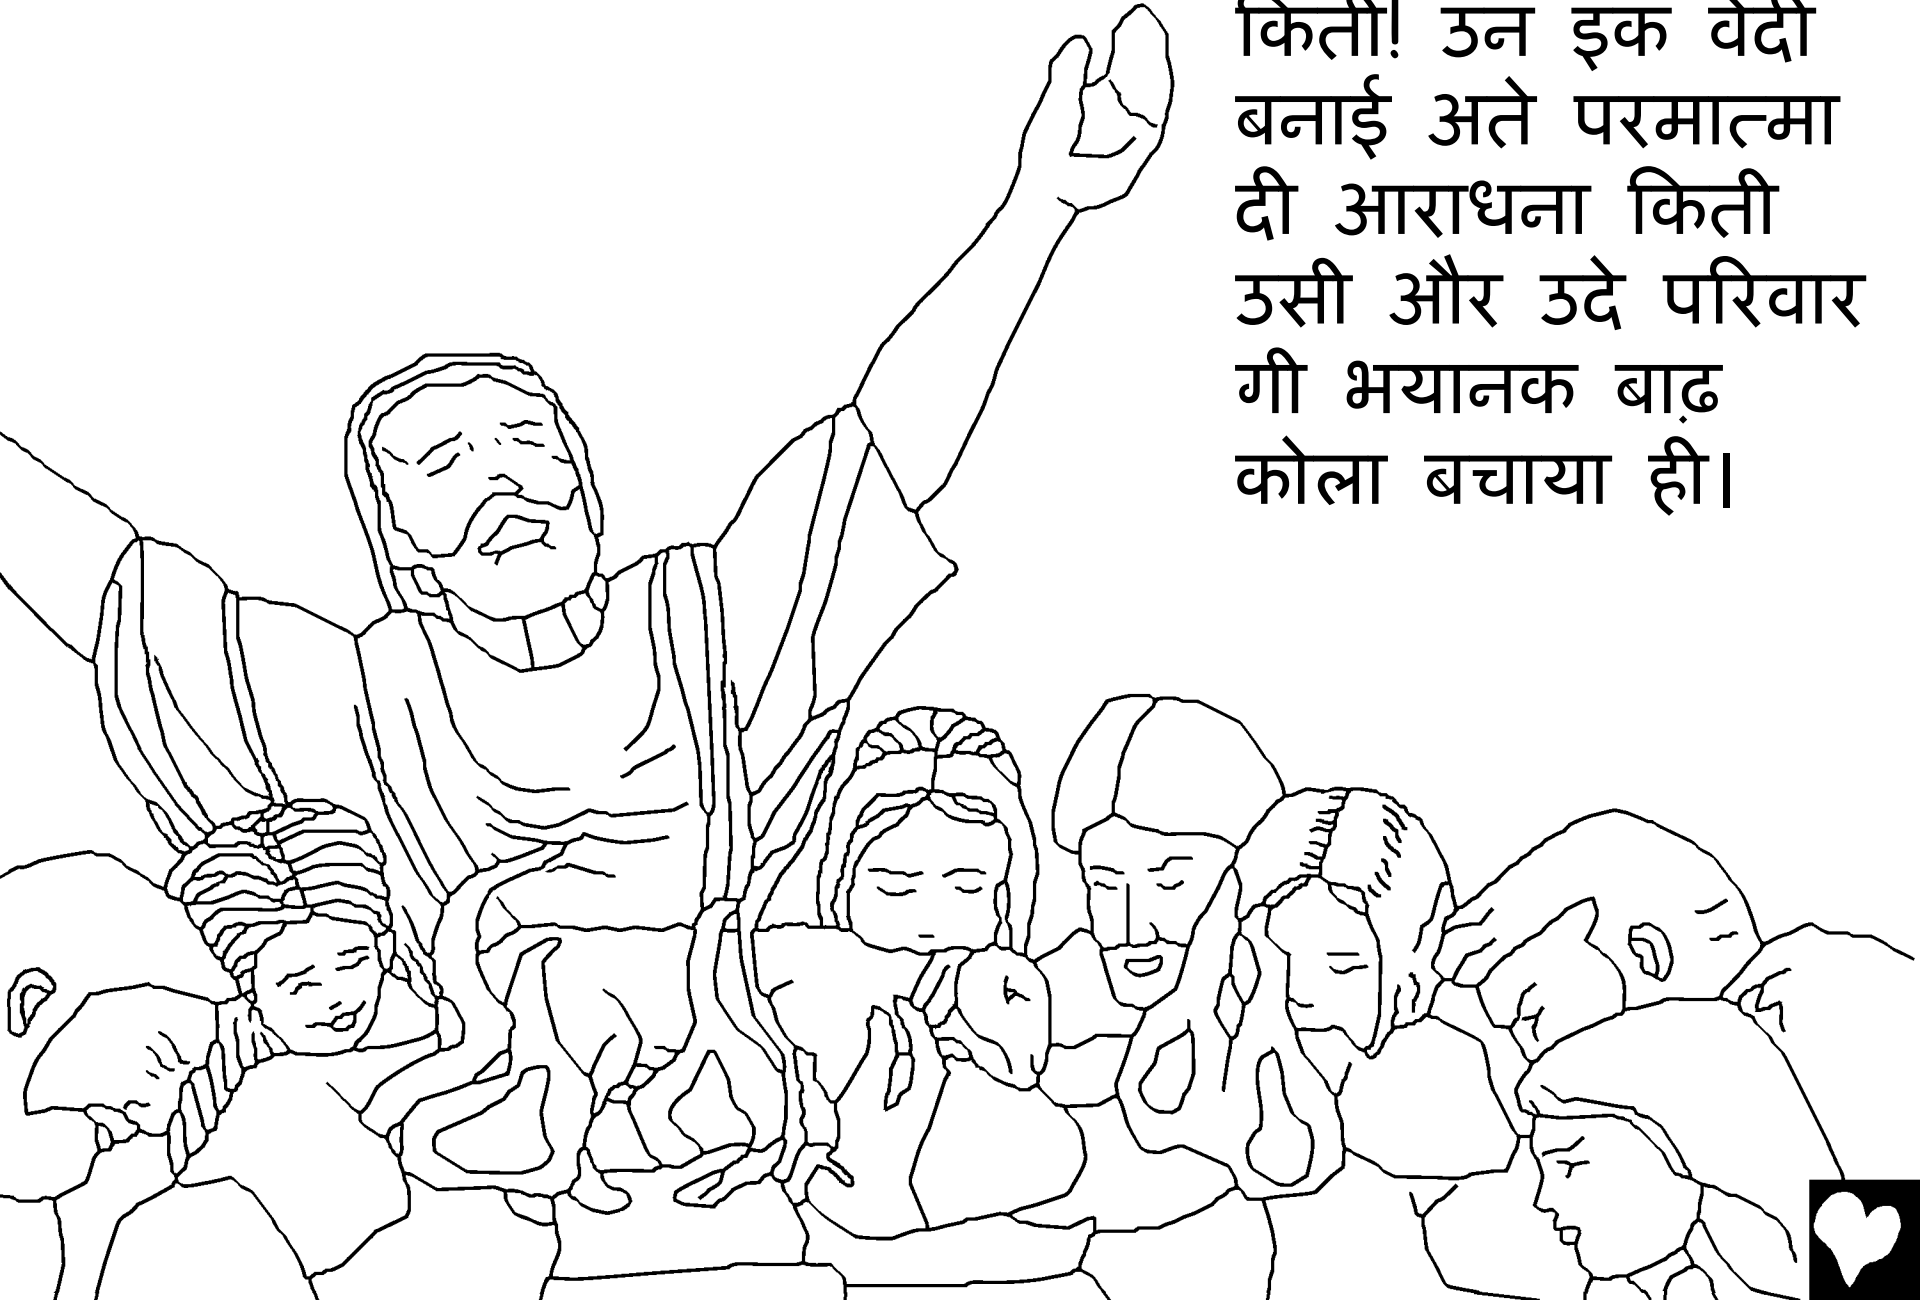 किती! उन इक वेदी
बनाई अते परमात्मा
दी आराधना किती
उसी और उदे परिवार
गी भयानक बाढ़
कोला बचाया ही।